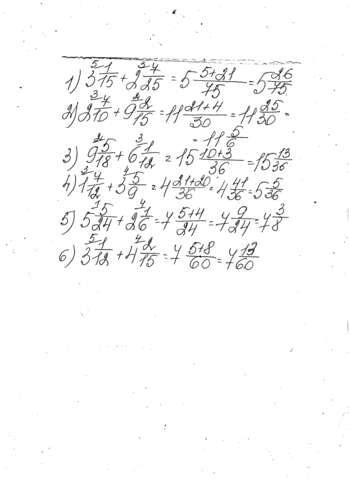 1) 3 1/15 + 2 7/25 = 5 (5+21)/75 = 5 26/75
2) 2 7/10 + 9 2/15 = 11 (21+4)/30 = 11 25/30 =
= 11 5/6
3) 9 5/18 + 6 1/12 = 15 (10+3)/36 = 15 13/36
4) 1 7/12 + 3 5/9 = 4 (21+20)/36 = 4 41/36 = 5 5/36
5) 5 5/24 + 2 1/6 = 7 (5+4)/24 = 7 9/24 = 7 3/8
6) 3 1/12 + 4 2/15 = 7 (5+8)/60 = 7 13/60